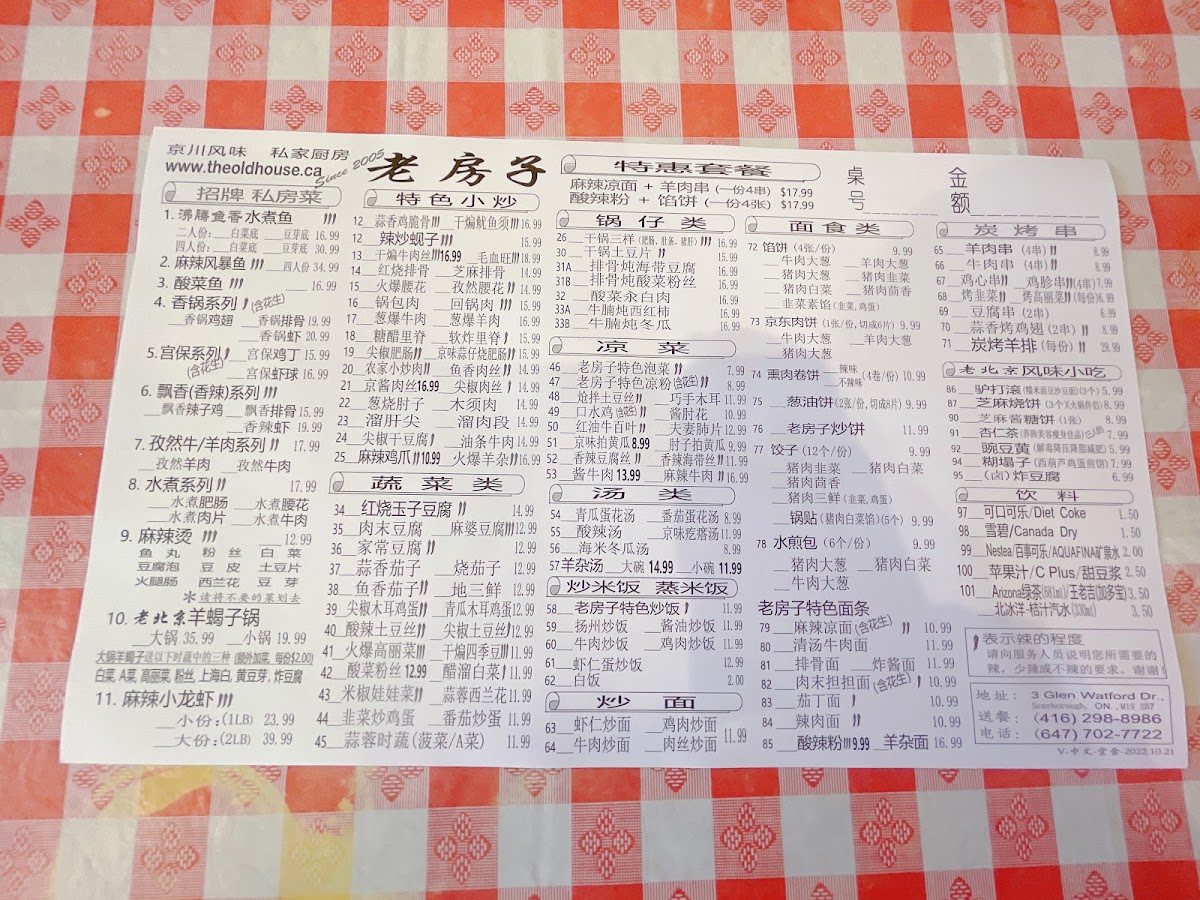 京川风味 私家厨房
www.theoldhouse.ca
Since 2005
老房子
特惠套餐
麻辣凉面 + 羊肉串 (一份4串) $17.99
酸辣粉 + 馅饼 (一份4张) $17.99
桌号
金额
招牌 私房菜
1. 沸腾鱼香水煮鱼
二人份: 白菜底 豆芽底 16.99
四人份: 白菜底 豆芽底 30.99
2. 麻辣风暴鱼 四人份 34.99
3. 酸菜鱼 16.99
4. 香锅系列 (含花生)
香锅鸡翅 香锅排骨 19.99
香锅虾 20.99
5. 宫保系列 (含花生) 宫保鸡丁 15.99
宫保虾球 16.99
6. 飘香(香辣)系列
飘香辣子鸡 飘香排骨 15.99
香辣虾 19.99
7. 孜然牛/羊肉系列 17.99
孜然羊肉 孜然牛肉
8. 水煮系列 17.99
水煮肥肠 水煮腰花
水煮肉片 水煮牛肉
9. 麻辣烫 12.99
鱼丸 粉丝 白菜
豆腐泡 豆皮 土豆片
火腿肠 西兰花 豆芽
*请将不要的菜划去
10. 老北京羊蝎子锅
大锅 35.99 小锅 19.99
大锅羊蝎子送以下时蔬中的三种 (额外加菜, 每份$2.00)
白菜, A菜, 高丽菜, 粉丝, 上海白, 黄豆芽, 炸豆腐
11. 麻辣小龙虾
小份: (1LB) 23.99
大份: (2LB) 39.99
特色小炒
12 蒜香鸡脆骨 干煸鱿鱼须 16.99
12 辣炒蚬子 15.99
13 干煸牛肉丝 16.99 毛血旺 18.99
14 红烧排骨 芝麻排骨 14.99
15 火爆腰花 孜然腰花 14.99
16 锅包肉 回锅肉 15.99
17 葱爆牛肉 葱爆羊肉 16.99
18 糖醋里脊 软炸里脊 15.99
19 尖椒肥肠 京味蒜仔烧肥肠 15.99
20 农家小炒肉 鱼香肉丝 14.99
21 京酱肉丝 16.99 尖椒肉丝 14.99
22 葱烧肘子 木须肉 14.99
23 溜肝尖 溜肉段 14.99
24 尖椒干豆腐 油条牛肉 14.99
25 麻辣鸡爪 10.99 火爆羊杂 16.99
蔬菜类
34 红烧玉子豆腐 14.99
35 肉末豆腐 麻婆豆腐 12.99
36 家常豆腐 12.99
37 蒜香茄子 烧茄子 12.99
38 鱼香茄子 地三鲜 12.99
39 尖椒木耳鸡蛋 青瓜木耳鸡蛋 12.99
40 酸辣土豆丝 尖椒土豆丝 12.99
41 火爆高丽菜 干煸四季豆 11.99
42 酸菜粉丝 12.99 醋溜白菜 11.99
43 米椒娃娃菜 蒜蓉西兰花 11.99
44 韭菜炒鸡蛋 番茄炒蛋 11.99
45 蒜蓉时蔬(菠菜/A菜) 11.99
锅仔类
26 干锅三样 (肥肠、肚条、猪肝) 16.99
30 干锅土豆片 15.99
31A 排骨炖海带豆腐 16.99
31B 排骨炖酸菜粉丝 16.99
32 酸菜汆白肉 16.99
33A 牛腩炖西红柿 16.99
33B 牛腩炖冬瓜 16.99
凉菜
46 老房子特色泡菜 7.99
47 老房子特色凉粉(含花生) 8.99
48 炝拌土豆丝 巧手木耳 11.99
49 口水鸡(含花生) 酱肘花 10.99
50 红油牛百叶 夫妻肺片 12.99
51 京味拍黄瓜 8.99 肘子拍黄瓜 9.99
52 香辣豆腐丝 香辣海带丝 11.99
53 酱牛肉 13.99 麻辣牛肉 16.99
汤类
54 青瓜蛋花汤 番茄蛋花汤 8.99
55 酸辣汤 京味疙瘩汤 11.99
56 海米冬瓜汤 8.99
57 羊杂汤 大碗 14.99 小碗 11.99
炒米饭 蒸米饭
58 老房子特色炒饭 11.99
59 扬州炒饭 酱油炒饭 11.99
60 牛肉炒饭 鸡肉炒饭 11.99
61 虾仁蛋炒饭 12.99
62 白饭 2.00
炒面
63 虾仁炒面 鸡肉炒面
64 牛肉炒面 肉丝炒面 11.99
面食类
72 馅饼 (4张/份) 9.99
牛肉大葱 羊肉大葱
猪肉大葱 猪肉韭菜
猪肉白菜 猪肉茴香
韭菜素馅(韭菜, 鸡蛋)
73 京东肉饼 (1张/份, 切成6片) 9.99
牛肉大葱 羊肉大葱
猪肉大葱
74 熏肉卷饼 辣味 不辣味 (4卷/份) 10.99
75 葱油饼 (2张/份, 切成8片) 9.99
76 老房子炒饼 11.99
77 饺子 (12个/份) 9.99
猪肉韭菜 猪肉白菜
猪肉茴香
猪肉三鲜 (韭菜, 鸡蛋)
锅贴(猪肉白菜馅)(5个) 9.99
78 水煎包 (6个/份) 9.99
猪肉大葱 猪肉白菜
牛肉大葱
老房子特色面条
79 麻辣凉面(含花生) 10.99
80 清汤牛肉面 10.99
81 排骨面 炸酱面 10.99
82 肉末担担面(含花生) 10.99
83 茄丁面 10.99
84 辣肉面 10.99
85 酸辣粉 9.99 羊杂面 16.99
炭烤串
65 羊肉串 (4串) 8.99
66 牛肉串 (4串) 8.99
67 鸡心串 鸡胗串 (4串) 7.99
68 烤韭菜 烤高丽菜 (每份) 6.99
69 豆腐串 (2串) 6.99
70 蒜香烤鸡翅 (2串) 8.99
71 炭烤羊排 (每份) 29.99
老北京风味小吃
86 驴打滚 (糯米面豆沙豆面)(3个) 5.99
87 芝麻烧饼 (3个叉火锅伴侣) 8.99
90 芝麻酱糖饼 (1张) 8.99
91 杏仁茶 7.99
92 豌豆黄 5.99
94 糊塌子 (西葫芦鸡蛋煎饼) 7.99
95 (卤)炸豆腐 6.99
饮料
97 可口可乐/Diet Coke 1.50
98 雪碧/Canada Dry 1.50
99 Nestea/百事可乐/AQUAFINA矿泉水 2.00
100 苹果汁/C Plus/甜豆浆 2.50
101 Arizona绿茶(681ml)/王老吉(加多宝) 3.50
北冰洋-桔汁汽水(330ml) 3.50
表示辣的程度
请向服务人员说明您所需要的
辣, 少辣或不辣的要求, 谢谢!
地址: 3 Glen Watford Dr.,
Scarborough, ON., M1S 2B7
送餐: (416) 298-8986
电话: (647) 702-7722
V-中文-堂食-2022.10.21